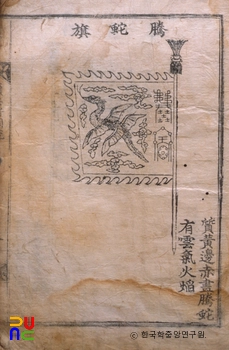 騰蛇旗
質黃邊赤畫騰蛇
有雲氣火焰
© 한국학중앙연구원